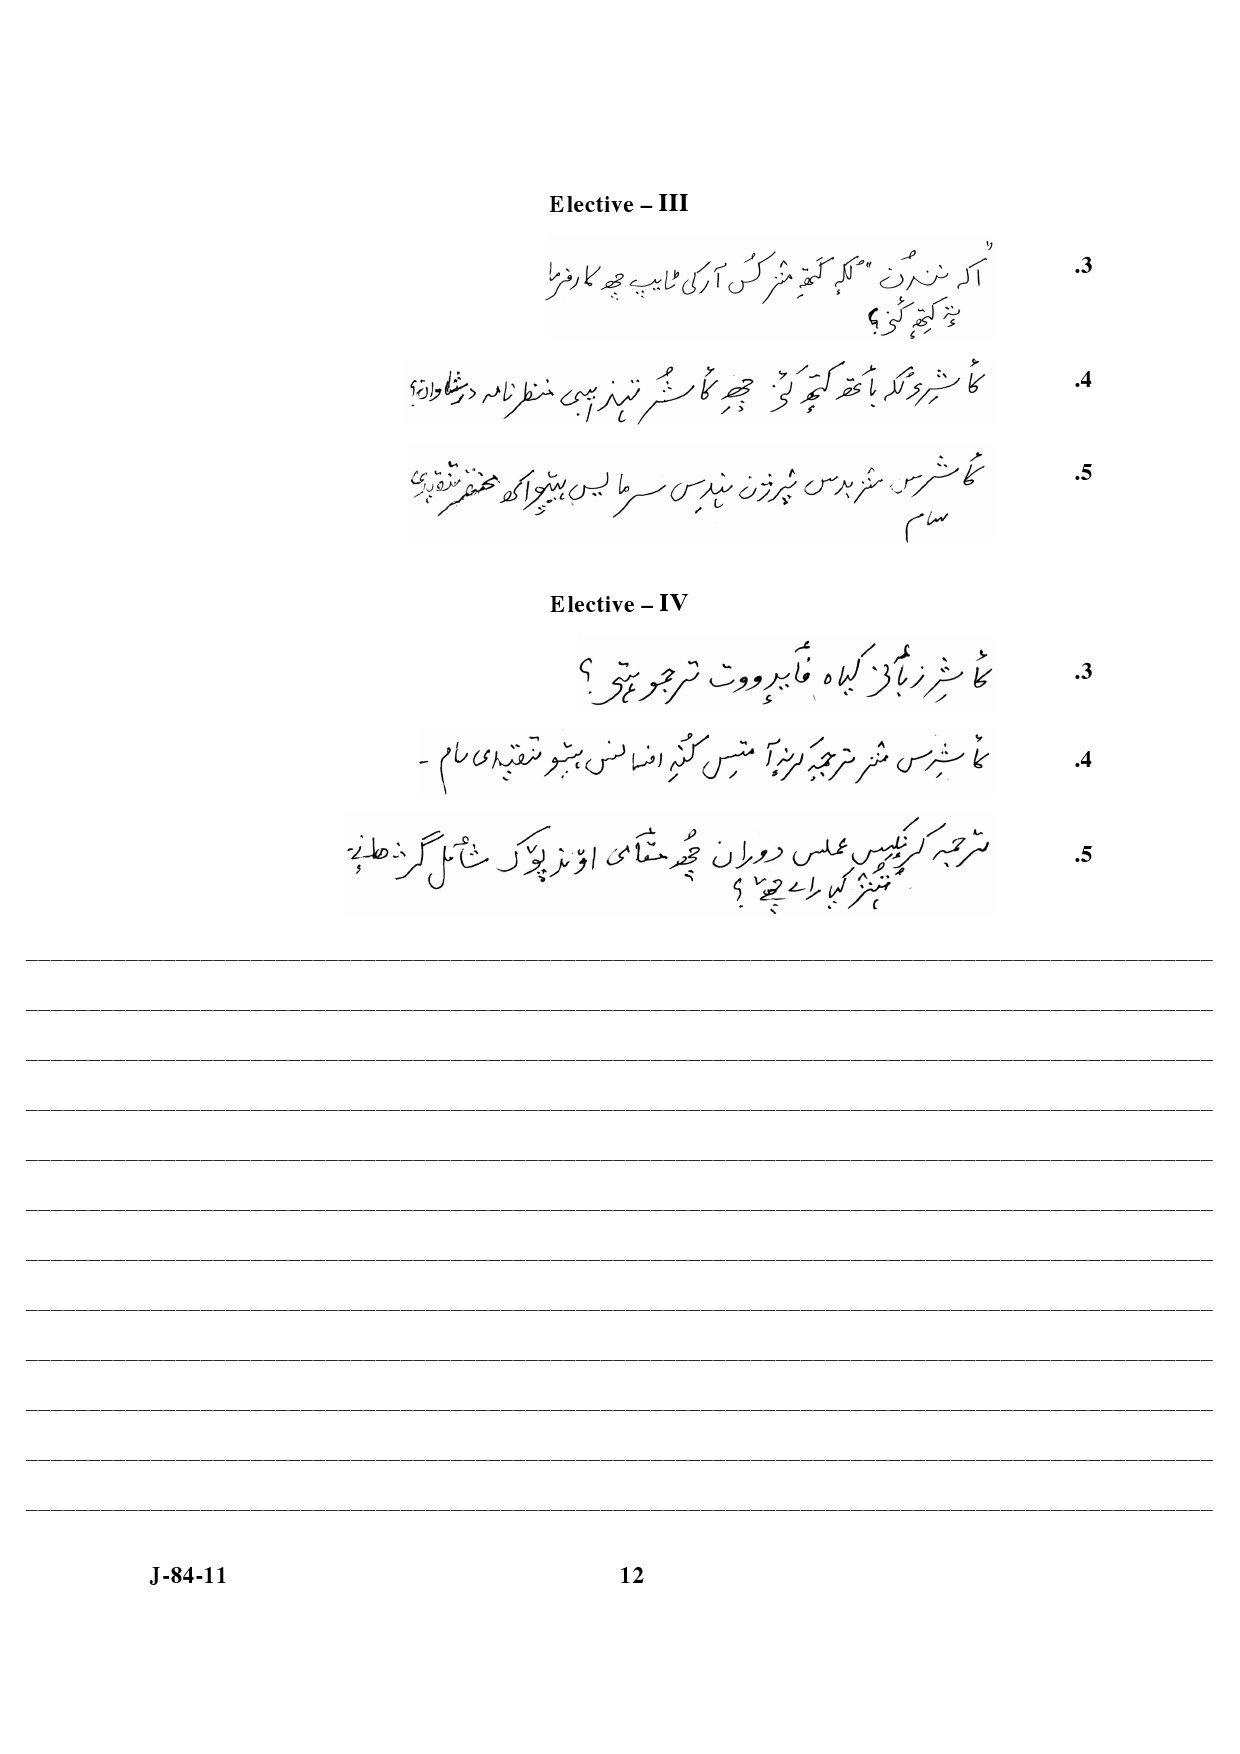 Elective – III
.3 "اکہ نندرُن" لُکہٕ کَتھہِ منٛز کُس آرکی ٹایپ چھ کارفرما
تہٕ کِتھہٕ کٔنۍ؟
.4 کٲشِرۍ لُکہ بٲتھ کِتھہٕ کٔنۍ چھِ کٲشُر تہذیبی منظر نامہ درشاوان؟
.5 کٲشرس منٛز مختصر تنقیدی
سام
Elective – IV
.3 کٲشرِ زبٲنۍ کیاہ فٲیدٕ ووت ترجمو ستۍ؟
.4 کٲشرس منٛز ترجمہٕ کرنہٕ آمتیس کُنہِ افسانس ہیٚیو تنقیدی سام -
.5 ترجمہ کرنکِس عملس دوران چھُ مقٲمی اوٚند پوٚک شٲمل گژھانہٕ
تُہنٛز کیا راے چھےٚ؟
J-84-11 12